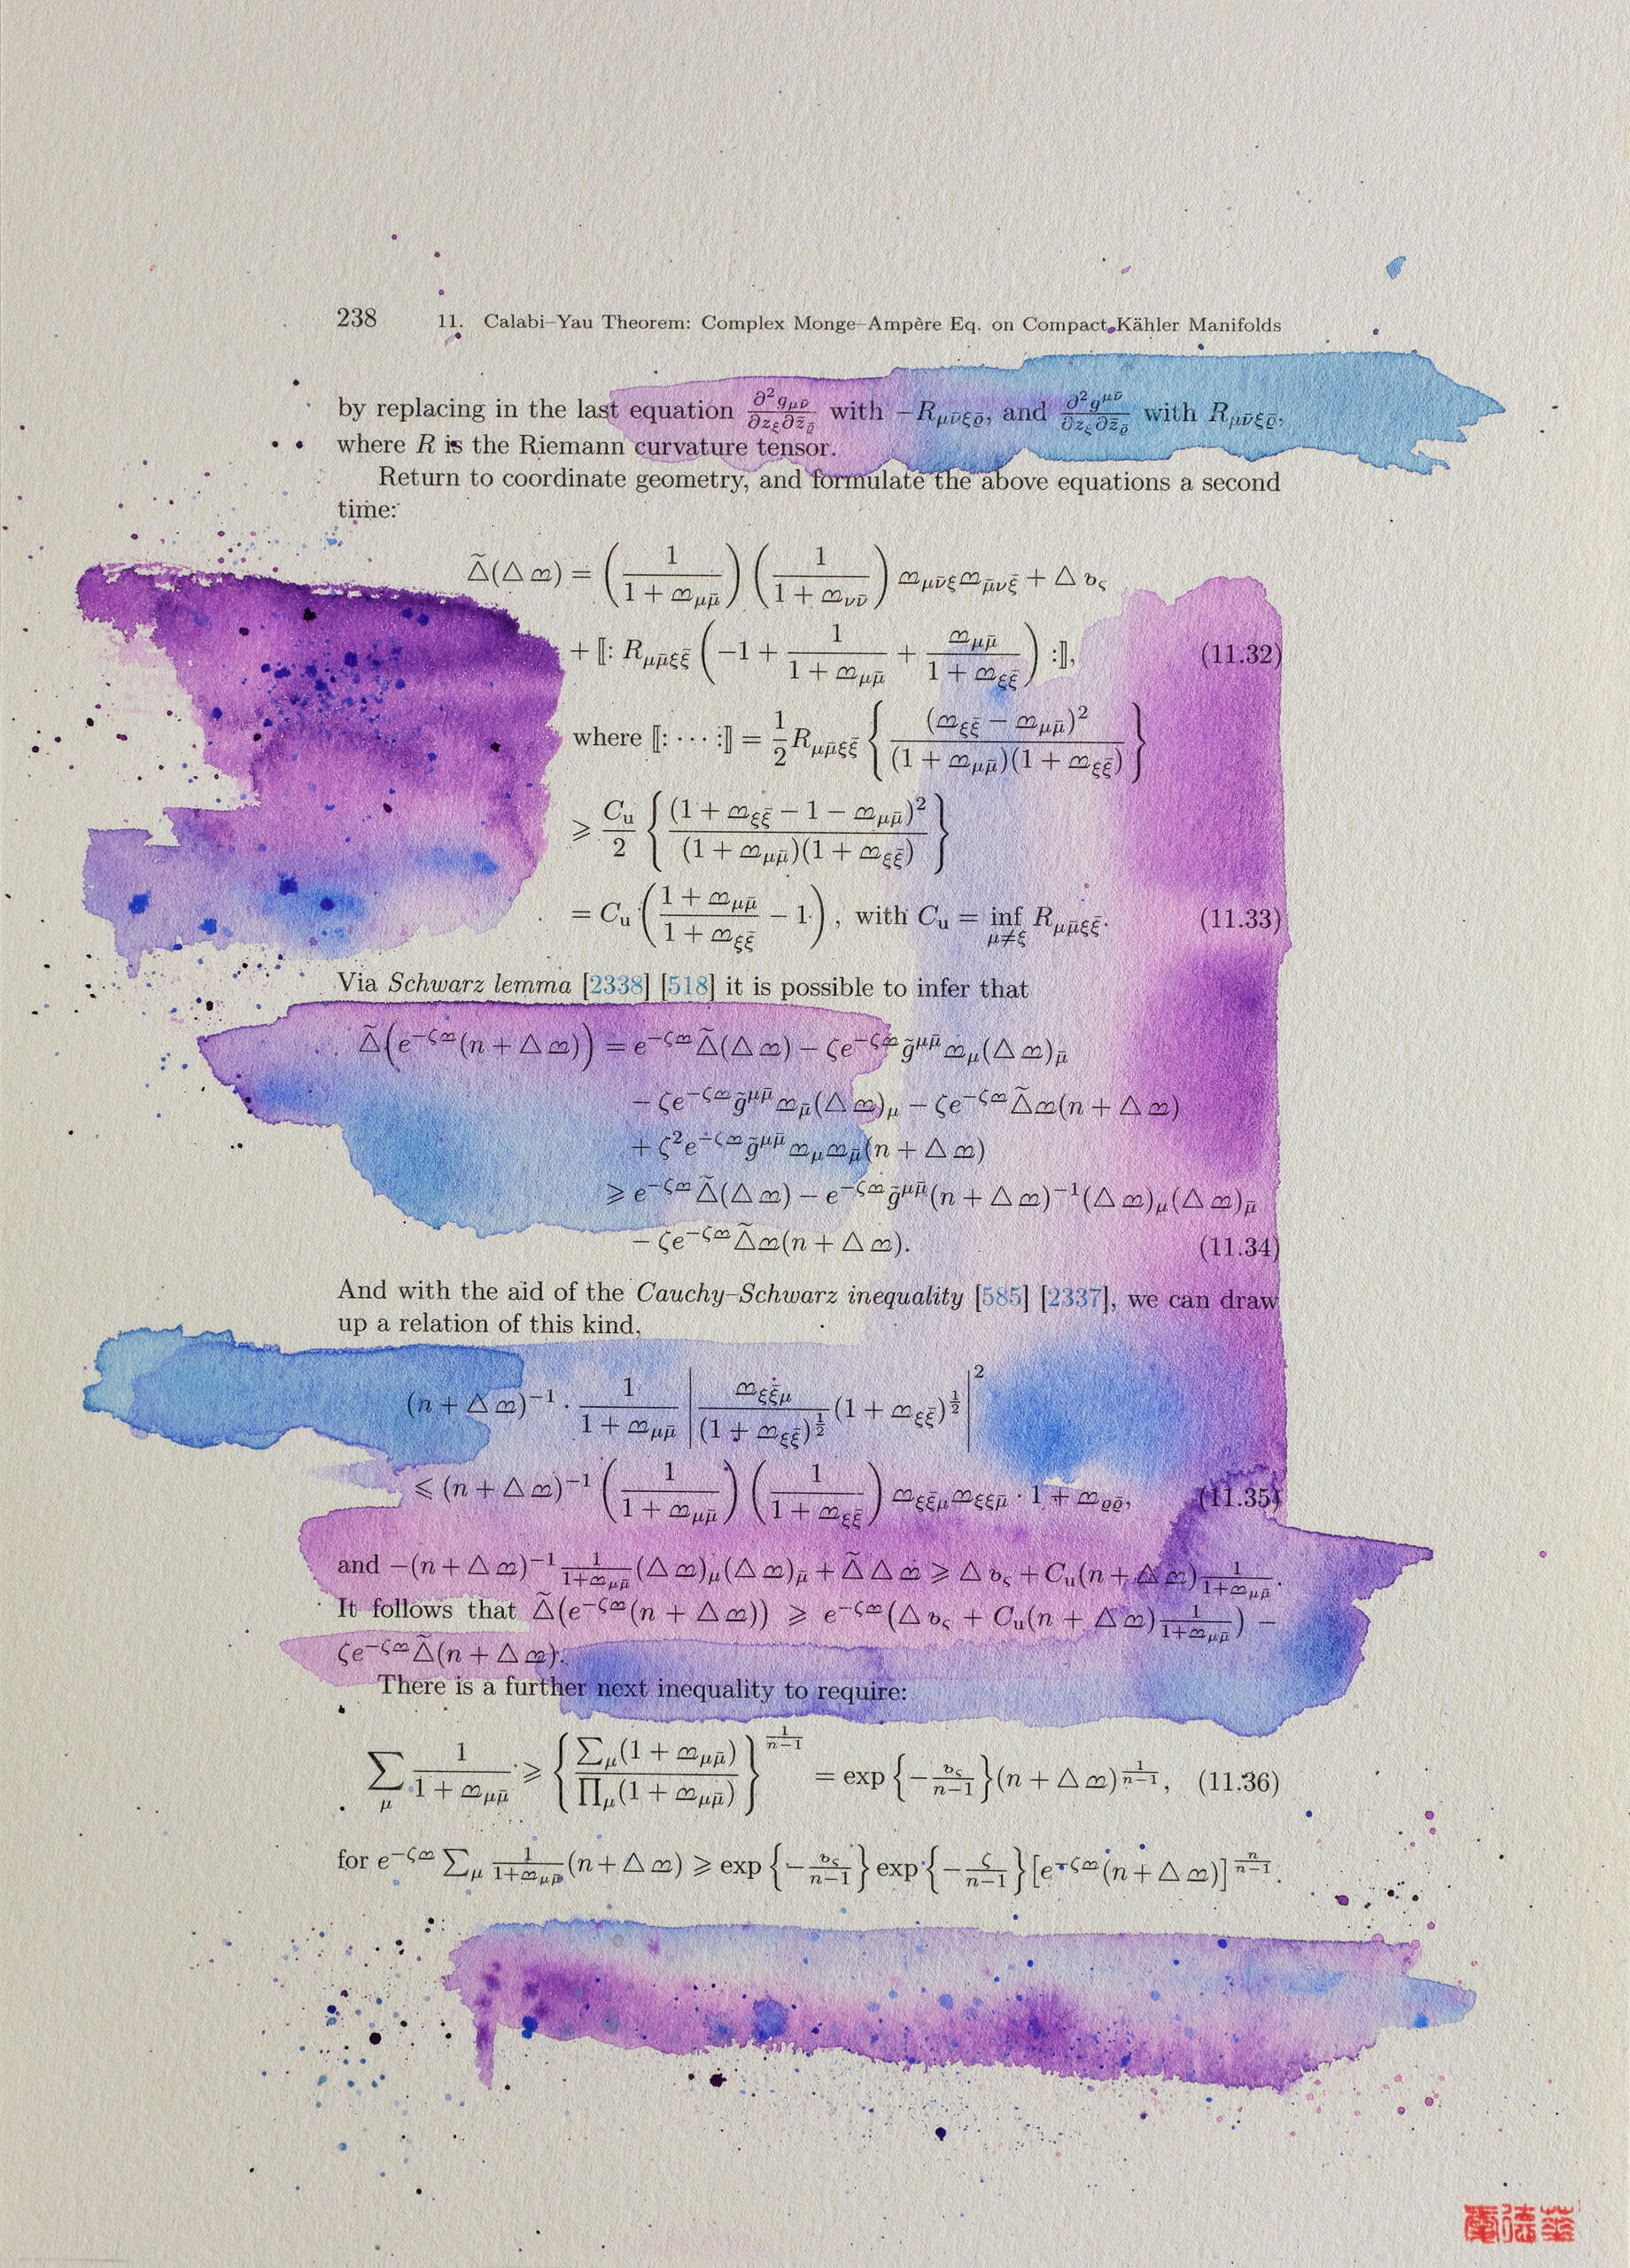 238 11. Calabi–Yau Theorem: Complex Monge–Ampère Eq. on Compact Kähler Manifolds
by replacing in the last equation $\frac{\partial^2 g_{\mu\bar{\nu}}}{\partial z_\xi \partial \bar{z}_{\bar{\varrho}}}$ with $-R_{\mu\bar{\nu}\xi\bar{\varrho}}$, and $\frac{\partial^2 g^{\mu\bar{\nu}}}{\partial z_\xi \partial \bar{z}_{\bar{\varrho}}}$ with $R_{\mu\bar{\nu}\xi\bar{\varrho}}$,
where $R$ is the Riemann curvature tensor.
Return to coordinate geometry, and formulate the above equations a second
time:
$\widetilde{\triangle}(\triangle ꭃ) = \left(\frac{1}{1 + ꭃ_{\mu\bar{\mu}}}\right)\left(\frac{1}{1 + ꭃ_{\nu\bar{\nu}}}\right) ꭃ_{\mu\bar{\nu}\xi} ꭃ_{\bar{\mu}\nu\bar{\xi}} + \triangle b_\varsigma$
$+ [\![: R_{\mu\bar{\mu}\xi\bar{\xi}} \left(-1 + \frac{1}{1 + ꭃ_{\mu\bar{\mu}}} + \frac{ꭃ_{\mu\bar{\mu}}}{1 + ꭃ_{\xi\bar{\xi}}}\right) :]\!],$ (11.32)
where $[\![: \cdots :]\!] = \frac{1}{2} R_{\mu\bar{\mu}\xi\bar{\xi}} \left\{\frac{(ꭃ_{\xi\bar{\xi}} - ꭃ_{\mu\bar{\mu}})^2}{(1 + ꭃ_{\mu\bar{\mu}})(1 + ꭃ_{\xi\bar{\xi}})}\right\}$
$\geqslant \frac{C_u}{2} \left\{\frac{(1 + ꭃ_{\xi\bar{\xi}} - 1 - ꭃ_{\mu\bar{\mu}})^2}{(1 + ꭃ_{\mu\bar{\mu}})(1 + ꭃ_{\xi\bar{\xi}})}\right\}$
$= C_u \left(\frac{1 + ꭃ_{\mu\bar{\mu}}}{1 + ꭃ_{\xi\bar{\xi}}} - 1\right)$, with $C_u = \inf_{\mu \neq \xi} R_{\mu\bar{\mu}\xi\bar{\xi}}$. (11.33)
Via Schwarz lemma [2338] [518] it is possible to infer that
$\widetilde{\triangle}\left(e^{-\zeta ꭃ}(n + \triangle ꭃ)\right) = e^{-\zeta ꭃ} \widetilde{\triangle}(\triangle ꭃ) - \zeta e^{-\zeta ꭃ} \tilde{g}^{\mu\bar{\mu}} ꭃ_\mu (\triangle ꭃ)_{\bar{\mu}}$
$- \zeta e^{-\zeta ꭃ} \tilde{g}^{\mu\bar{\mu}} ꭃ_{\bar{\mu}} (\triangle ꭃ)_\mu - \zeta e^{-\zeta ꭃ} \widetilde{\triangle} ꭃ (n + \triangle ꭃ)$
$+ \zeta^2 e^{-\zeta ꭃ} \tilde{g}^{\mu\bar{\mu}} ꭃ_\mu ꭃ_{\bar{\mu}} (n + \triangle ꭃ)$
$\geqslant e^{-\zeta ꭃ} \widetilde{\triangle}(\triangle ꭃ) - e^{-\zeta ꭃ} \tilde{g}^{\mu\bar{\mu}} (n + \triangle ꭃ)^{-1} (\triangle ꭃ)_\mu (\triangle ꭃ)_{\bar{\mu}}$
$- \zeta e^{-\zeta ꭃ} \widetilde{\triangle} ꭃ (n + \triangle ꭃ).$ (11.34)
And with the aid of the Cauchy–Schwarz inequality [585] [2337], we can draw
up a relation of this kind,
$(n + \triangle ꭃ)^{-1} \cdot \frac{1}{1 + ꭃ_{\mu\bar{\mu}}} \left|\frac{ꭃ_{\xi\bar{\xi}\mu}}{(1 + ꭃ_{\xi\bar{\xi}})^{\frac{1}{2}}} (1 + ꭃ_{\xi\bar{\xi}})^{\frac{1}{2}}\right|^2$
$\leqslant (n + \triangle ꭃ)^{-1} \left(\frac{1}{1 + ꭃ_{\mu\bar{\mu}}}\right)\left(\frac{1}{1 + ꭃ_{\xi\bar{\xi}}}\right) ꭃ_{\xi\bar{\xi}\mu} ꭃ_{\xi\xi\bar{\mu}} \cdot 1 + ꭃ_{\varrho\bar{\varrho}},$ (11.35)
and $-(n + \triangle ꭃ)^{-1} \frac{1}{1 + ꭃ_{\mu\bar{\mu}}} (\triangle ꭃ)_\mu (\triangle ꭃ)_{\bar{\mu}} + \widetilde{\triangle} \triangle ꭃ \geqslant \triangle b_\varsigma + C_u (n + \triangle ꭃ) \frac{1}{1 + ꭃ_{\mu\bar{\mu}}}$.
It follows that $\widetilde{\triangle}(e^{-\zeta ꭃ}(n + \triangle ꭃ)) \geqslant e^{-\zeta ꭃ}(\triangle b_\varsigma + C_u (n + \triangle ꭃ) \frac{1}{1 + ꭃ_{\mu\bar{\mu}}}) -$
$\zeta e^{-\zeta ꭃ} \widetilde{\triangle}(n + \triangle ꭃ)$.
There is a further next inequality to require:
$\sum_\mu \frac{1}{1 + ꭃ_{\mu\bar{\mu}}} \geqslant \left\{\frac{\sum_\mu (1 + ꭃ_{\mu\bar{\mu}})}{\prod_\mu (1 + ꭃ_{\mu\bar{\mu}})}\right\}^{\frac{1}{n-1}} = \exp\left\{-\frac{b_\varsigma}{n-1}\right\} (n + \triangle ꭃ)^{\frac{1}{n-1}},$ (11.36)
for $e^{-\zeta ꭃ} \sum_\mu \frac{1}{1 + ꭃ_{\mu\bar{\mu}}} (n + \triangle ꭃ) \geqslant \exp\left\{-\frac{b_\varsigma}{n-1}\right\} \exp\left\{-\frac{\zeta}{n-1}\right\} [e^{-\zeta ꭃ}(n + \triangle ꭃ)]^{\frac{n}{n-1}}$.